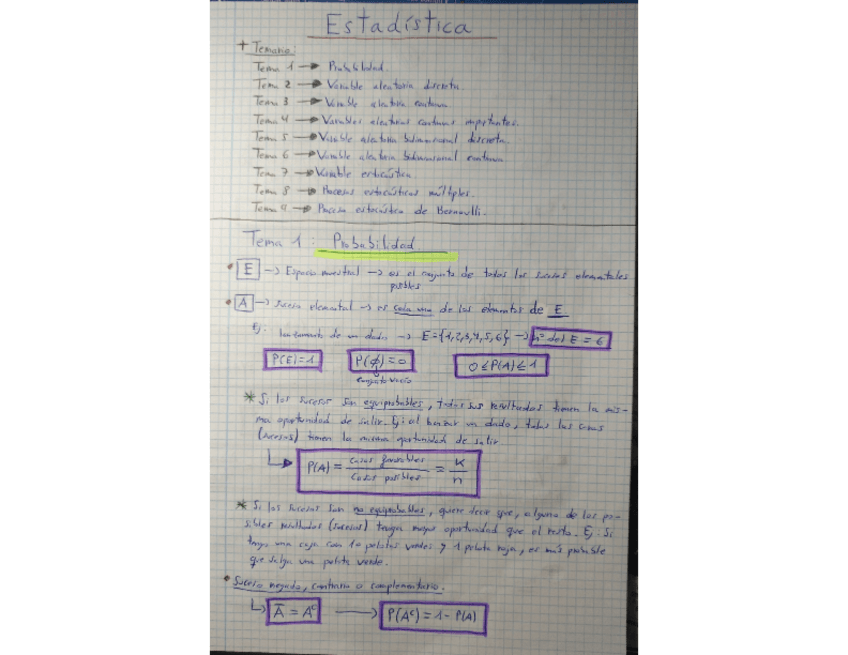 Estadística
+ Temario:
Tema 1 → Probabilidad.
Tema 2 → Variable aleatoria discreta.
Tema 3 → Variable aleatoria continua.
Tema 4 → Variables aleatorias continuas importantes.
Tema 5 → Variable aleatoria bidimensional discreta.
Tema 6 → Variable aleatoria bidimensional continua.
Tema 7 → Variable estocástica.
Tema 8 → Procesos estocásticos múltiples.
Tema 9 → Proceso estocástico de Bernoulli.
Tema 1: Probabilidad
• E → Espacio muestral → es el conjunto de todos los sucesos elementales
posibles
• A → Suceso elemental → es cada uno de los elementos de E
Ej. lanzamiento de un dado → E={1,2,3,4,5,6} → nº del E = 6
P(E)=1 P(ϕ)=0 0≤P(A)≤1
conjunto vacío
* Si los sucesos son equiprobables, todos sus resultados tienen la mis-
ma oportunidad de salir. Ej: al lanzar un dado, todas las caras
(sucesos) tienen la misma oportunidad de salir.
P(A) = casos favorables / casos posibles = K / n
* Si los sucesos son no equiprobables, quiere decir que, alguno de los po-
sibles resultados (sucesos) tengan mayor oportunidad que el resto. Ej: Si
tengo una caja con 10 pelotas verdes y 1 pelota roja, es más probable
que salga una pelota verde.
• Suceso negado, contrario o complementario.
Ā = Aᶜ → P(Aᶜ) = 1 - P(A)